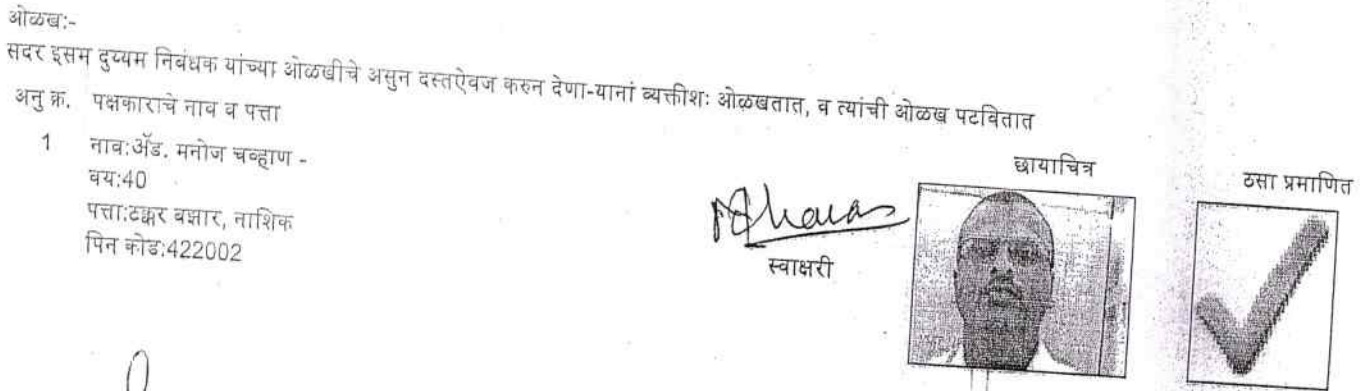 ओळख:-
सदर इसम दुय्यम निबंधक यांच्या ओळखीचे असुन दस्तऐवज करुन देणा-यानां व्यक्तीशः ओळखतात, व त्यांची ओळख पटवितात
अनु क्र. पक्षकाराचे नाव व पत्ता
1 नाव:ॲड. मनोज चव्हाण -
वय:40
पत्ता:ठक्कर बझार, नाशिक
पिन कोड:422002
छायाचित्र
ठसा प्रमाणित
स्वाक्षरी